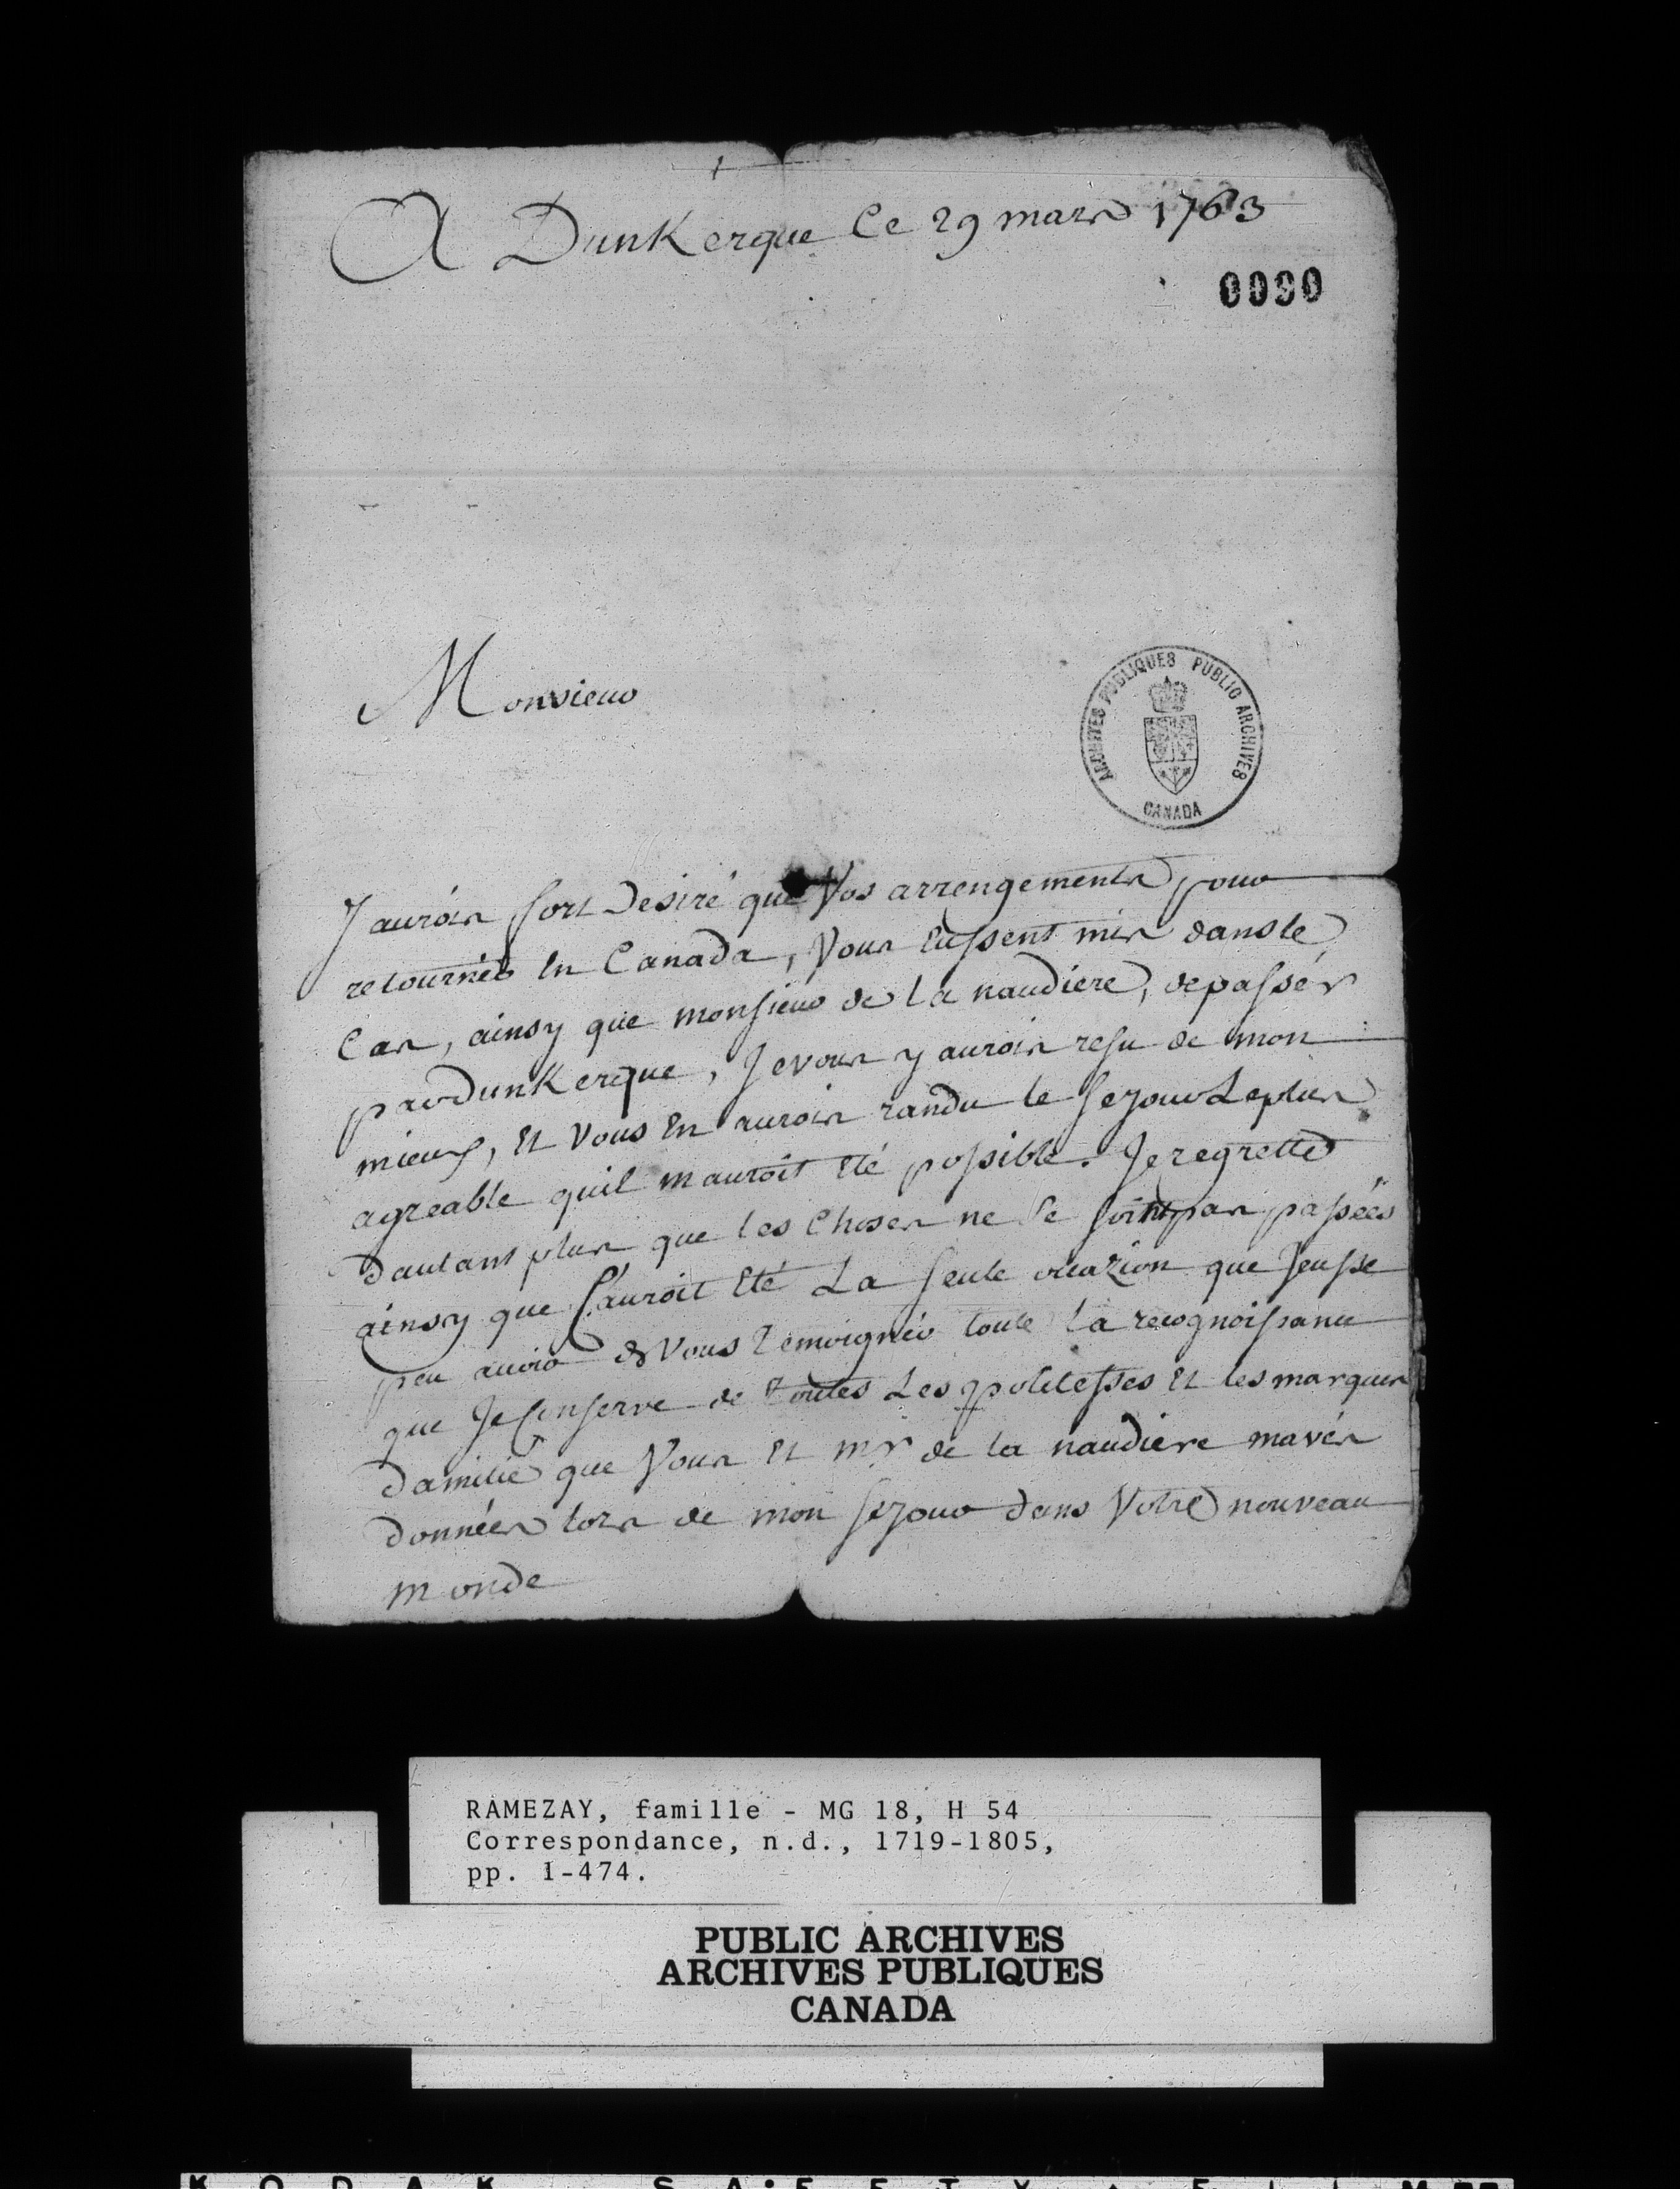 A Dunkerque Ce 29 mars 1763
0090
Monsieur
ARCHIVES PUBLIQUES PUBLIC ARCHIVES
CANADA
J'aurois fort Desiré que Vos arrengements pour
retournér En Canada, Vous Eussent mis dans le
Cas, ainsy que monsieur de la naudiere, de passér
par Dunkerque, Je vous y aurois resu de mon
mieux, Et Vous En aurois randu le sejour Le plus
agreable quil mauroit Eté possible. Je regrette
dautant plus que les Choses ne se soint pas passées
ainsy que C'auroit Eté La seule occazion que Jeusse
peu avoir de Vous Temoignér toute la recognoissance
que Je Conserve de Toutes Les politesses Et les marques
damitié que Vous Et mr de la naudiere mavés
données lors de mon sejour dans Votre nouveau
monde
RAMEZAY, famille - MG 18, H 54
Correspondance, n.d., 1719-1805,
pp. 1-474.
PUBLIC ARCHIVES
ARCHIVES PUBLIQUES
CANADA